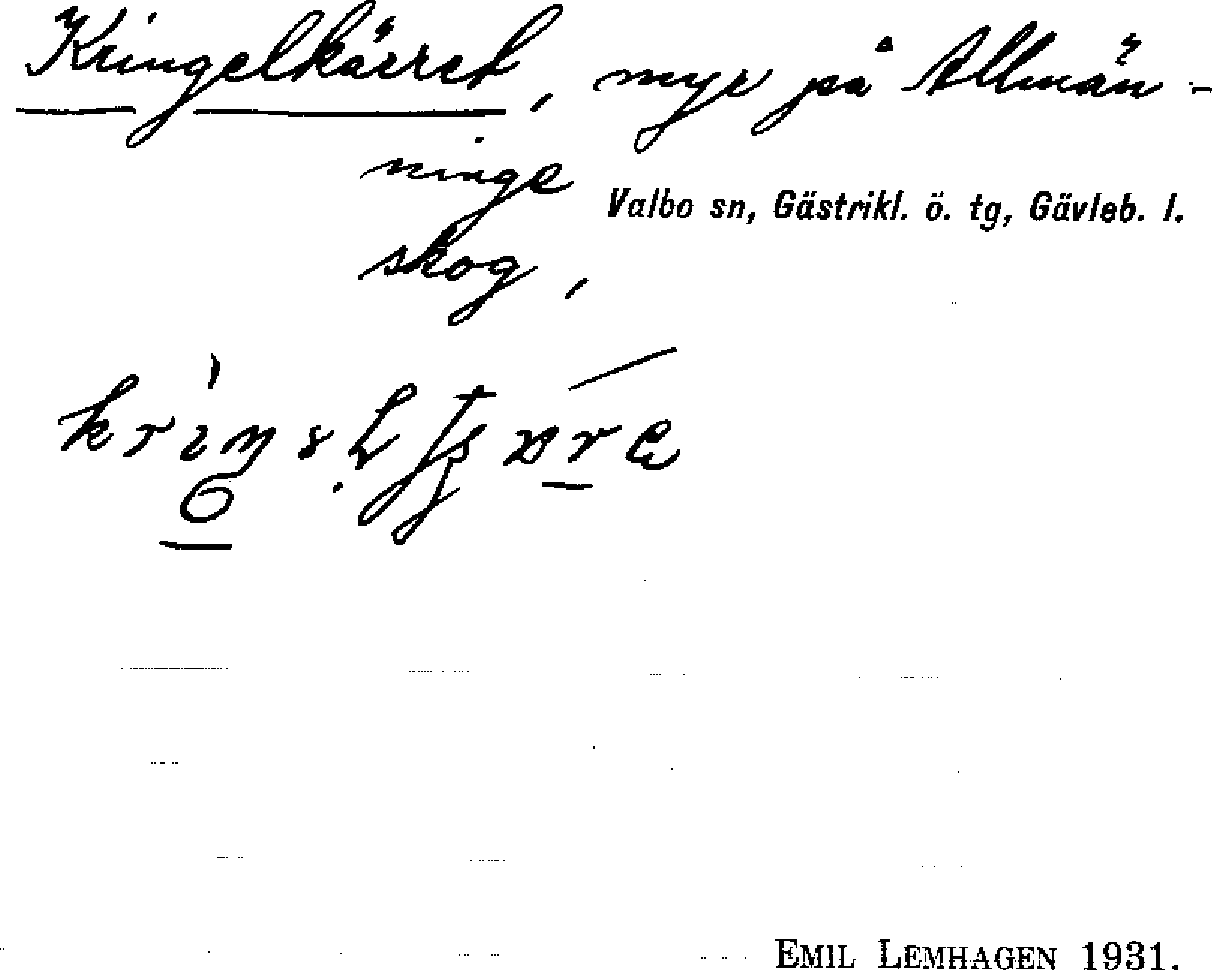 Kringelkärret, myr på Allmän-
ninge
Valbo sn, Gästrikl. ö. tg, Gävleb. l.
skog,
EMIL LEMHAGEN 1931.